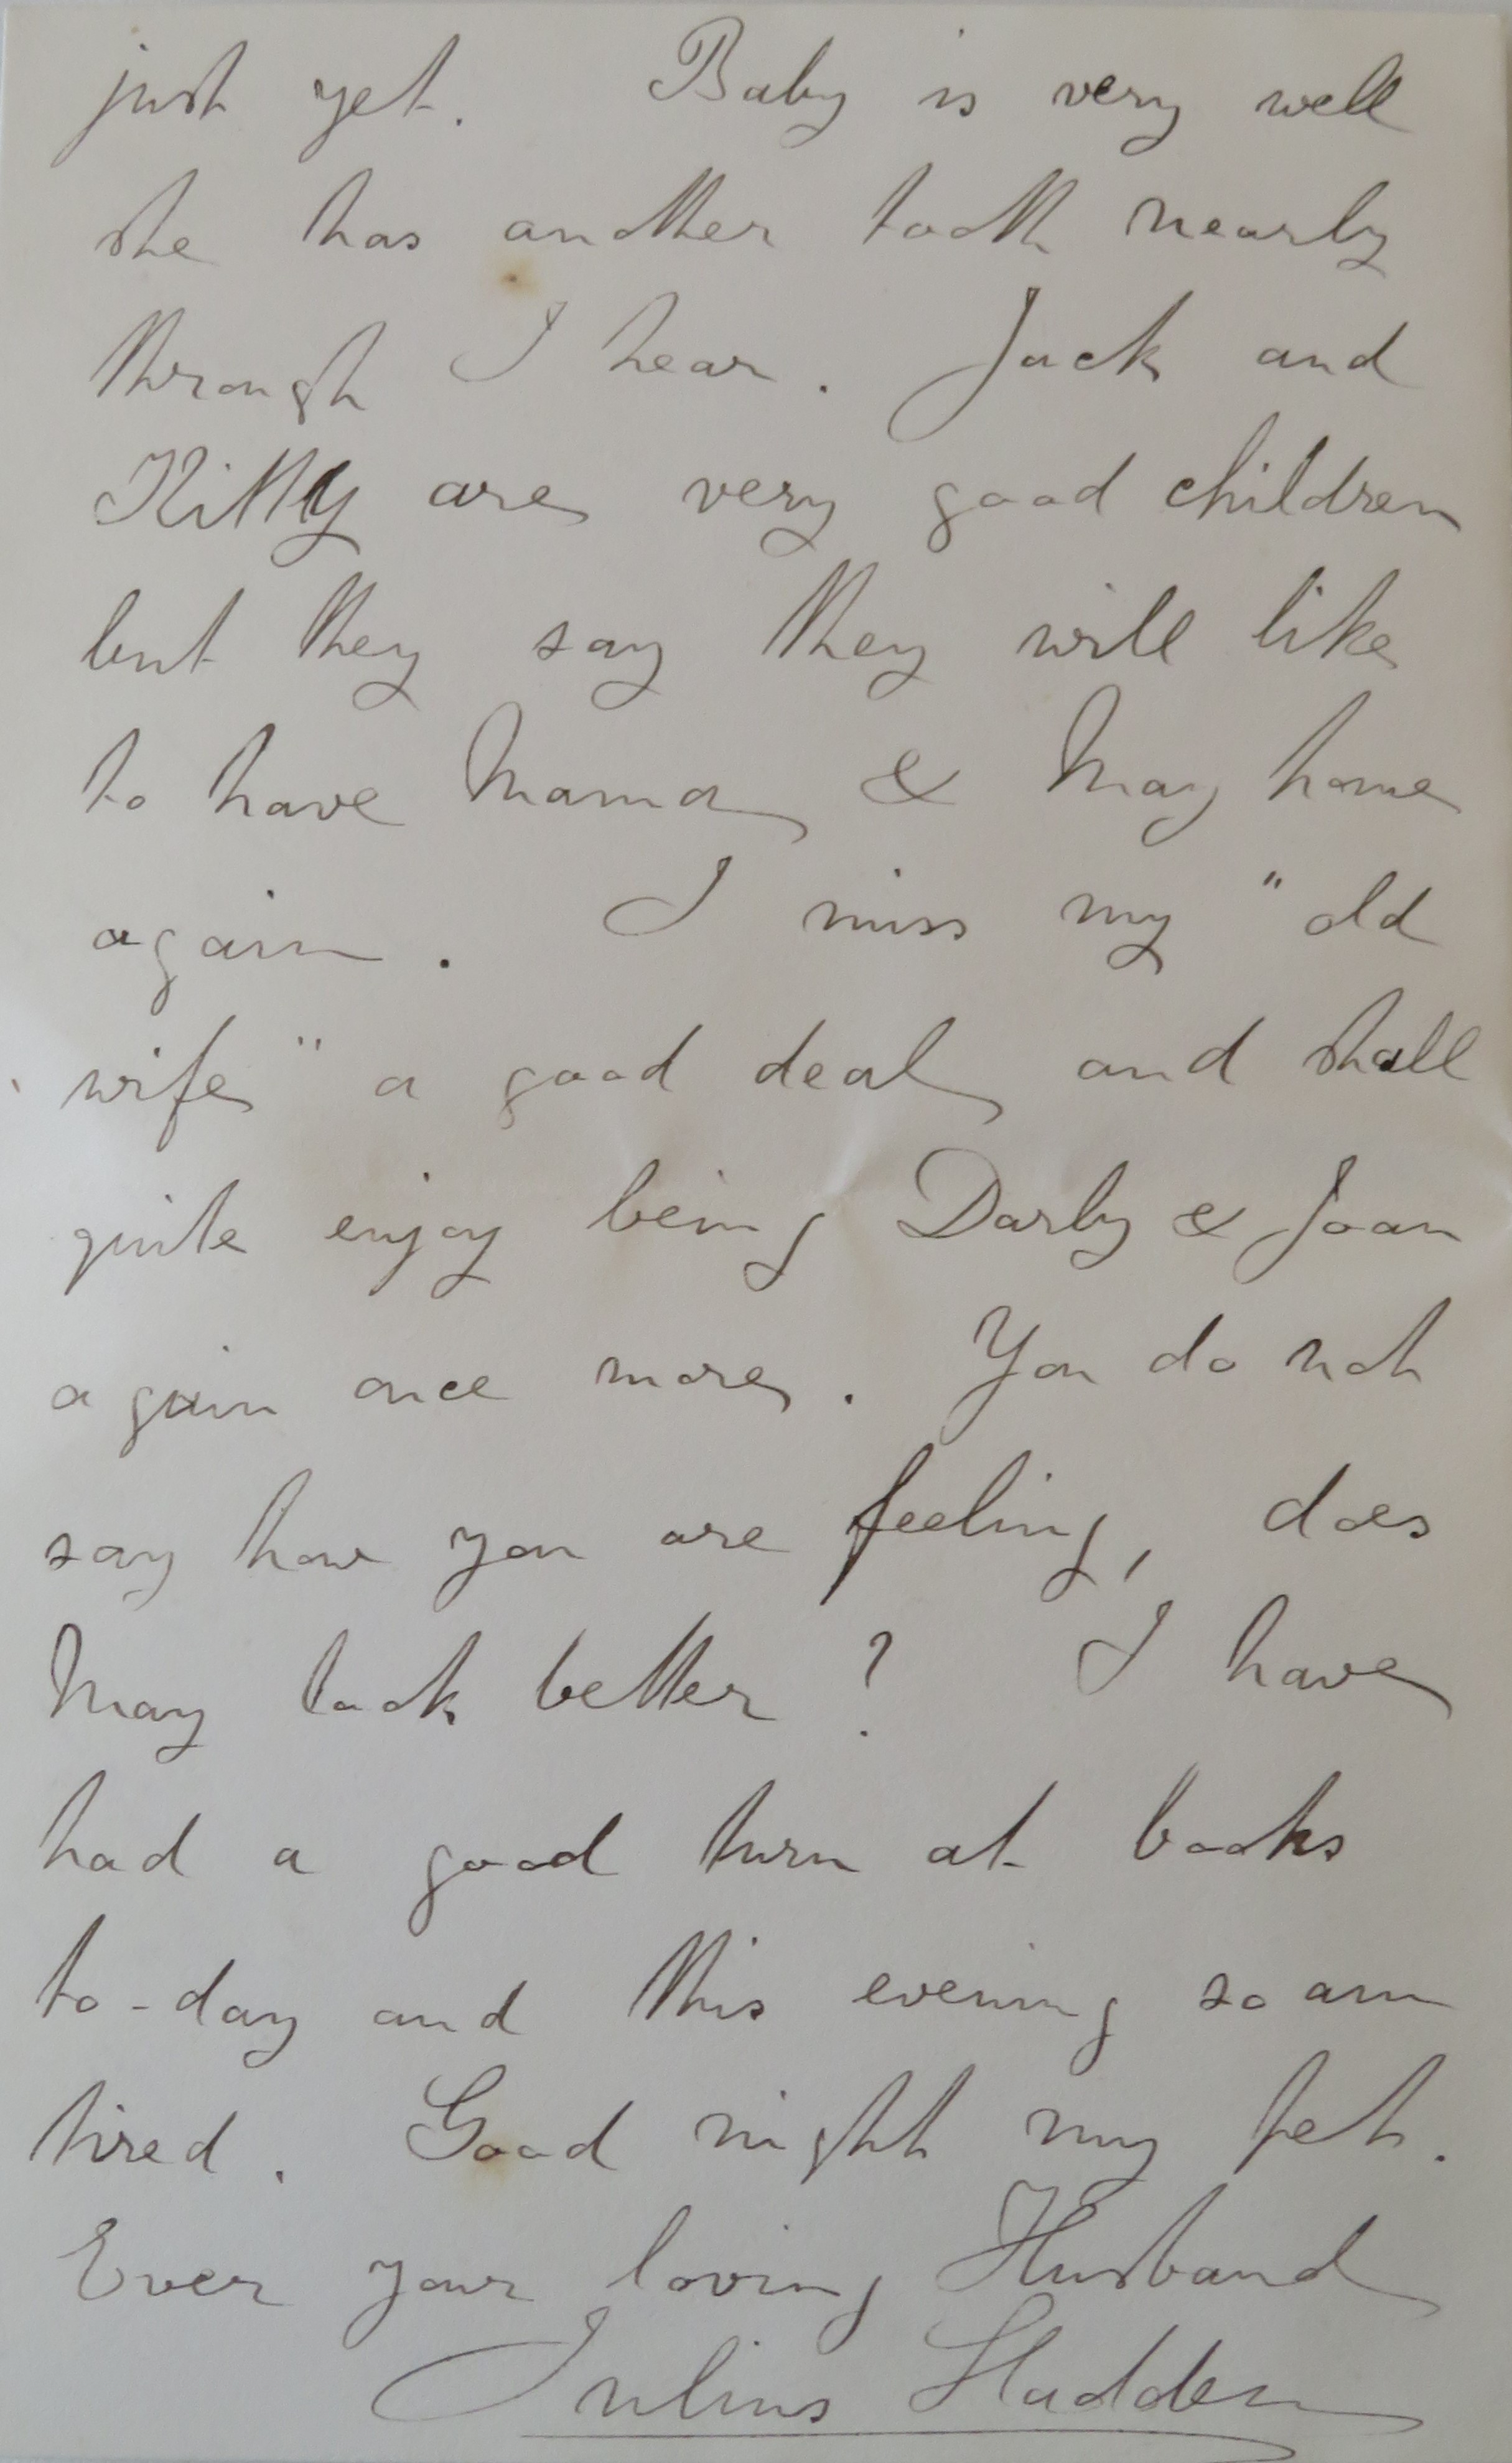 just yet. Baby is very well
she has another tooth nearly
through I hear. Jack and
Kitty are very good children
but they say they will like
to have Mama & May home
again. I miss my "old
wife" a good deal and shall
quite enjoy being Darby & Joan
again once more. You do not
say how you are feeling, does
May look better? I have
had a good turn at books
to-day and this evening so am
tired. Good night my pet.
Ever your loving Husband
Julius Hadden